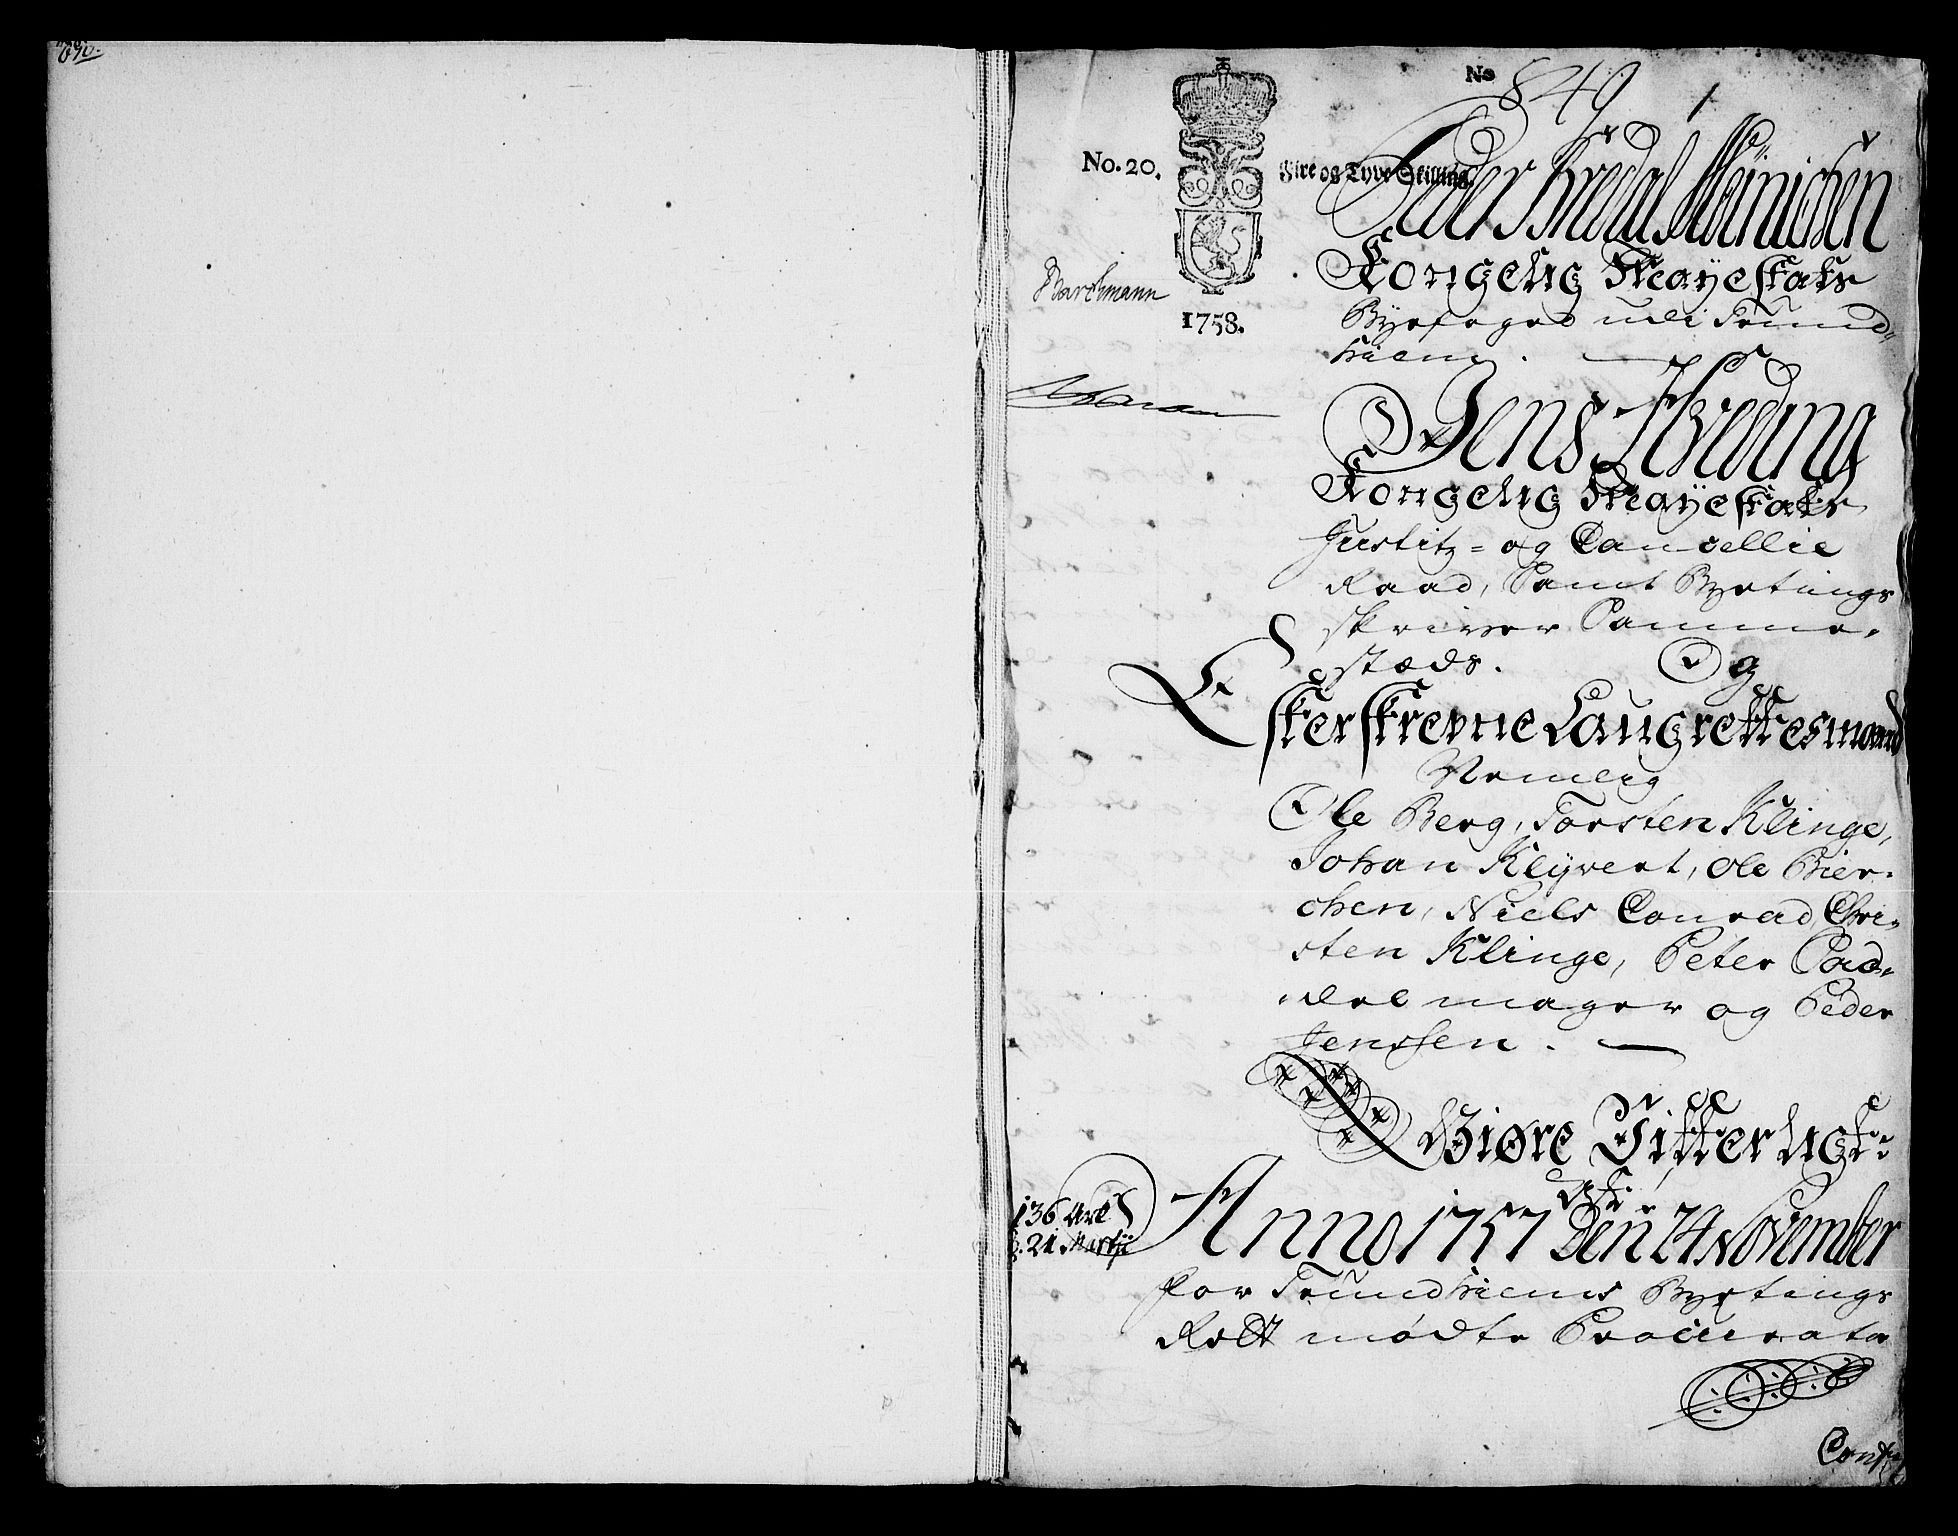 No 849 1
No. 20. Fire og Tyve Skilling.
Peder Bredal Meinichen
Kongelig Mayestæts
Byefoged udi Trund-
hiem. —
Jens Hveding
Kongelig Mayestæts
Justitz= og Cancellie
Raad, Samt Byetings
skriver Samme-
stæds. Og
Efterskrevne Laugrettesmænd
Nemlig
Ole Berg, Torsten Klinge,
Johan Klyvert, Ole Bier-
chen, Niels Conrad, Chri-
sten Klinge, Peter Sad-
delmager og Peder
Jenssen. —
Giøre Vitterligt:
At
Anno 1757 Den 24 November
for Trundhiems Byetings
Rett mødte Procurator
1758.
136 Ark
21 Martii